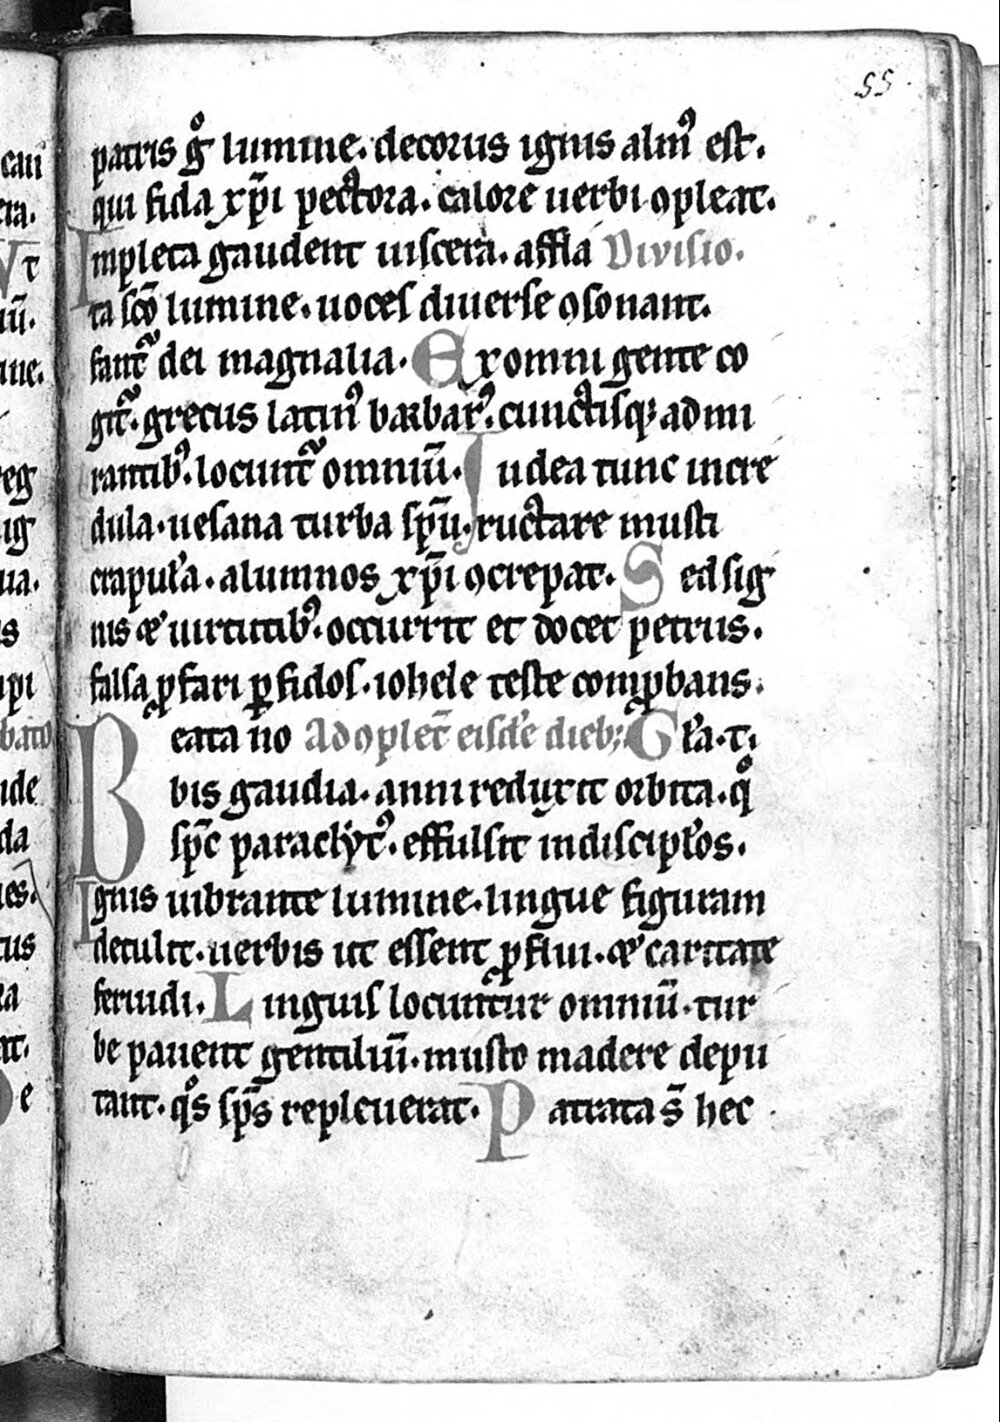 55
patris gͦ lumine. decorus ignis almꝰ est.
qui fida xp̄i pectora. calore uerbi ꝯpleat.
Impleta gaudent uiscera. affla Divisio.
ta sc̄o lumine. uoces diuerse ꝯsonant.
fantᷓ dei magnalia. Ex omni gente co
gitᷓ. grecus latinꝰ barbarꝰ. cunctisqꝫ admi
rantibꝰ. locuntᷓ omniū. Iudea tunc incre
dula. uesana turba sp̄u. ructare musti
crapul̕a. alumnos xp̄i ꝯcrepat. Sed sig
nis ⁊ uirtutibꝰ. occurrit et docet petrus.
falsa ꝓfari ꝑfidos. iohele teste comꝓbans.
Beata no Ad ꝯplet̄ eisdē diebꝫ. Gl̕a. t.
bis gaudia. anni reduxit orbita. qͦ
sp̄c paraclẏtꝰ. effulsit in discipl̕os.
Ignis uibrante lumine. lingue figuram
detulit. uerbis ut essent ꝓflui. ⁊ caritate
feruidi. Linguis locuntur omniū. tur
be pauent gentiliū. musto madere depu
tant. qͦs sp̄s repleuerat. Patrata s̄ hec